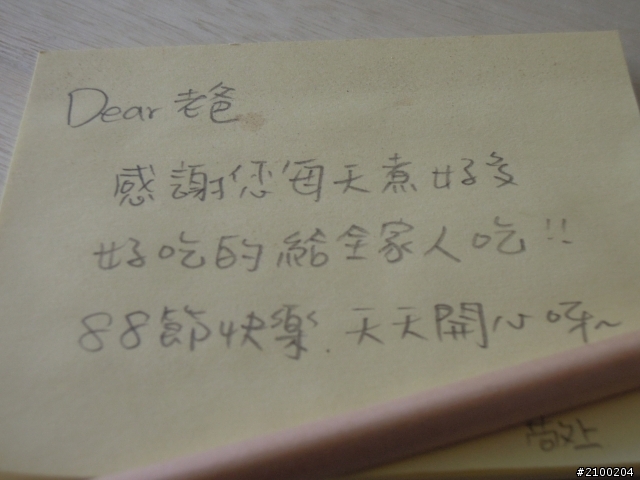 Dear 老爸
感謝您每天煮好多
好吃的給全家人吃!!
88節快樂.天天開心呀~
敬上
#2100204